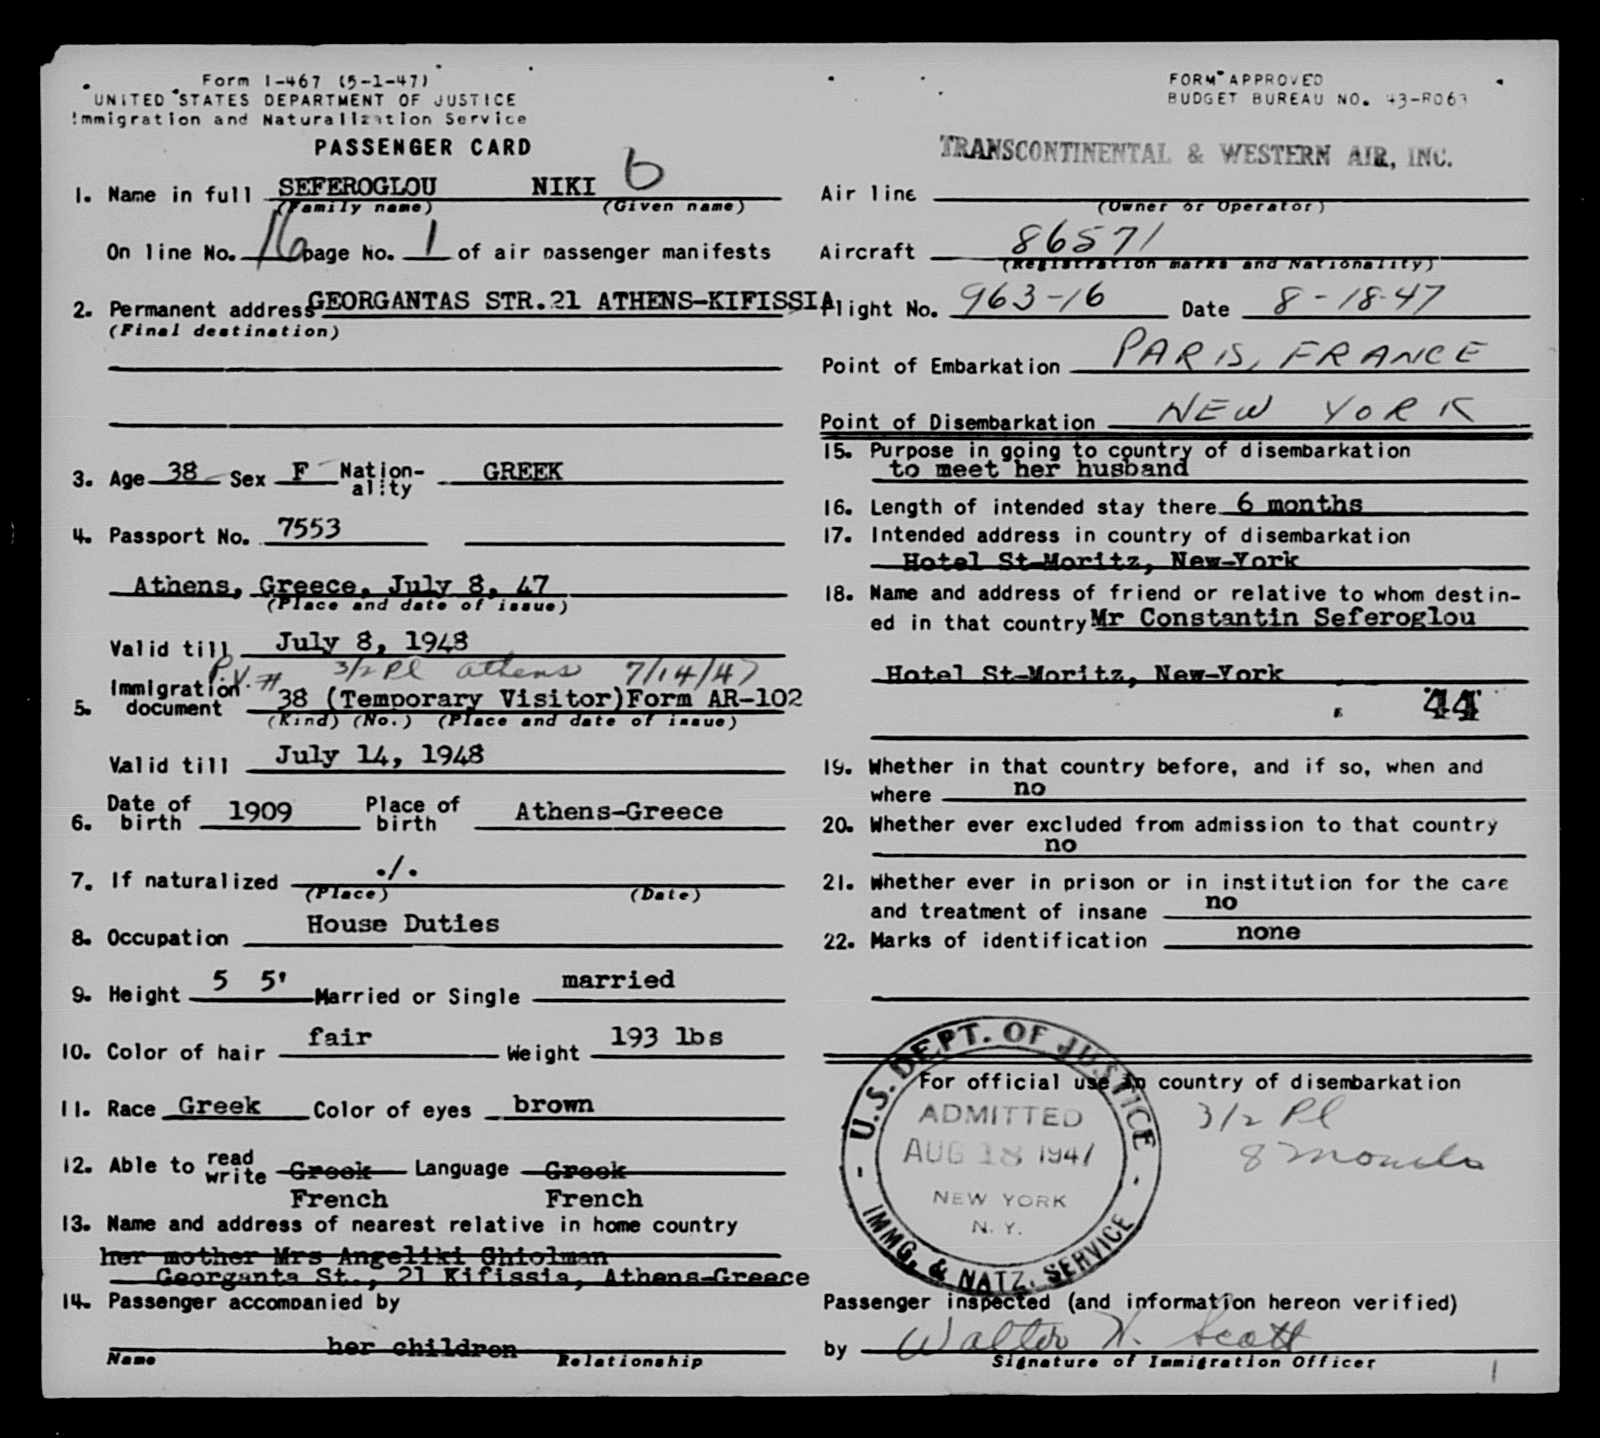 Form I-467 (5-1-47)
UNITED STATES DEPARTMENT OF JUSTICE
Immigration and Naturalization Service
PASSENGER CARD
FORM APPROVED
BUDGET BUREAU NO. 43-R063
TRANSCONTINENTAL & WESTERN AIR, INC.
1. Name in full SEFEROGLOU NIKI 6
(Family name) (Given name)
On line No. 16 page No. 1 of air passenger manifests
2. Permanent address GEORGANTAS STR.21 ATHENS-KIFISSIA
(Final destination)
3. Age 38 Sex F Nation-ality GREEK
4. Passport No. 7553
Athens, Greece, July 8, 47
(Place and date of issue)
Valid till July 8, 1948
P.V. # 3/2 Pl Athens 7/14/47
5. Immigration document 38 (Temporary Visitor) Form AR-102
(Kind) (No.) (Place and date of issue)
Valid till July 14, 1948
6. Date of birth 1909 Place of birth Athens-Greece
7. If naturalized ./.
(Place) (Date)
8. Occupation House Duties
9. Height 5 5' Married or Single married
10. Color of hair fair Weight 193 lbs
11. Race Greek Color of eyes brown
12. Able to read write Greek Language Greek
French French
13. Name and address of nearest relative in home country
her mother Mrs Angeliki Ghiolman
Georganta St., 21 Kifissia, Athens-Greece
14. Passenger accompanied by
her children
Name Relationship
Air line
(Owner or Operator)
Aircraft 86571
(Registration marks and Nationality)
Flight No. 963-16 Date 8-18-47
Point of Embarkation PARIS, FRANCE
Point of Disembarkation NEW YORK
15. Purpose in going to country of disembarkation
to meet her husband
16. Length of intended stay there 6 months
17. Intended address in country of disembarkation
Hotel St-Moritz, New-York
18. Name and address of friend or relative to whom destin-
ed in that country Mr Constantin Seferoglou
Hotel St-Moritz, New-York
44
19. Whether in that country before, and if so, when and
where no
20. Whether ever excluded from admission to that country
no
21. Whether ever in prison or in institution for the care
and treatment of insane no
22. Marks of identification none
For official use in country of disembarkation
U.S. DEPT. OF JUSTICE
ADMITTED
AUG 18 1947
NEW YORK
N. Y.
IMMG. & NATZ. SERVICE
3/2 Pl
8 months
Passenger inspected (and information hereon verified)
by Walter W. Scott
Signature of Immigration Officer
1